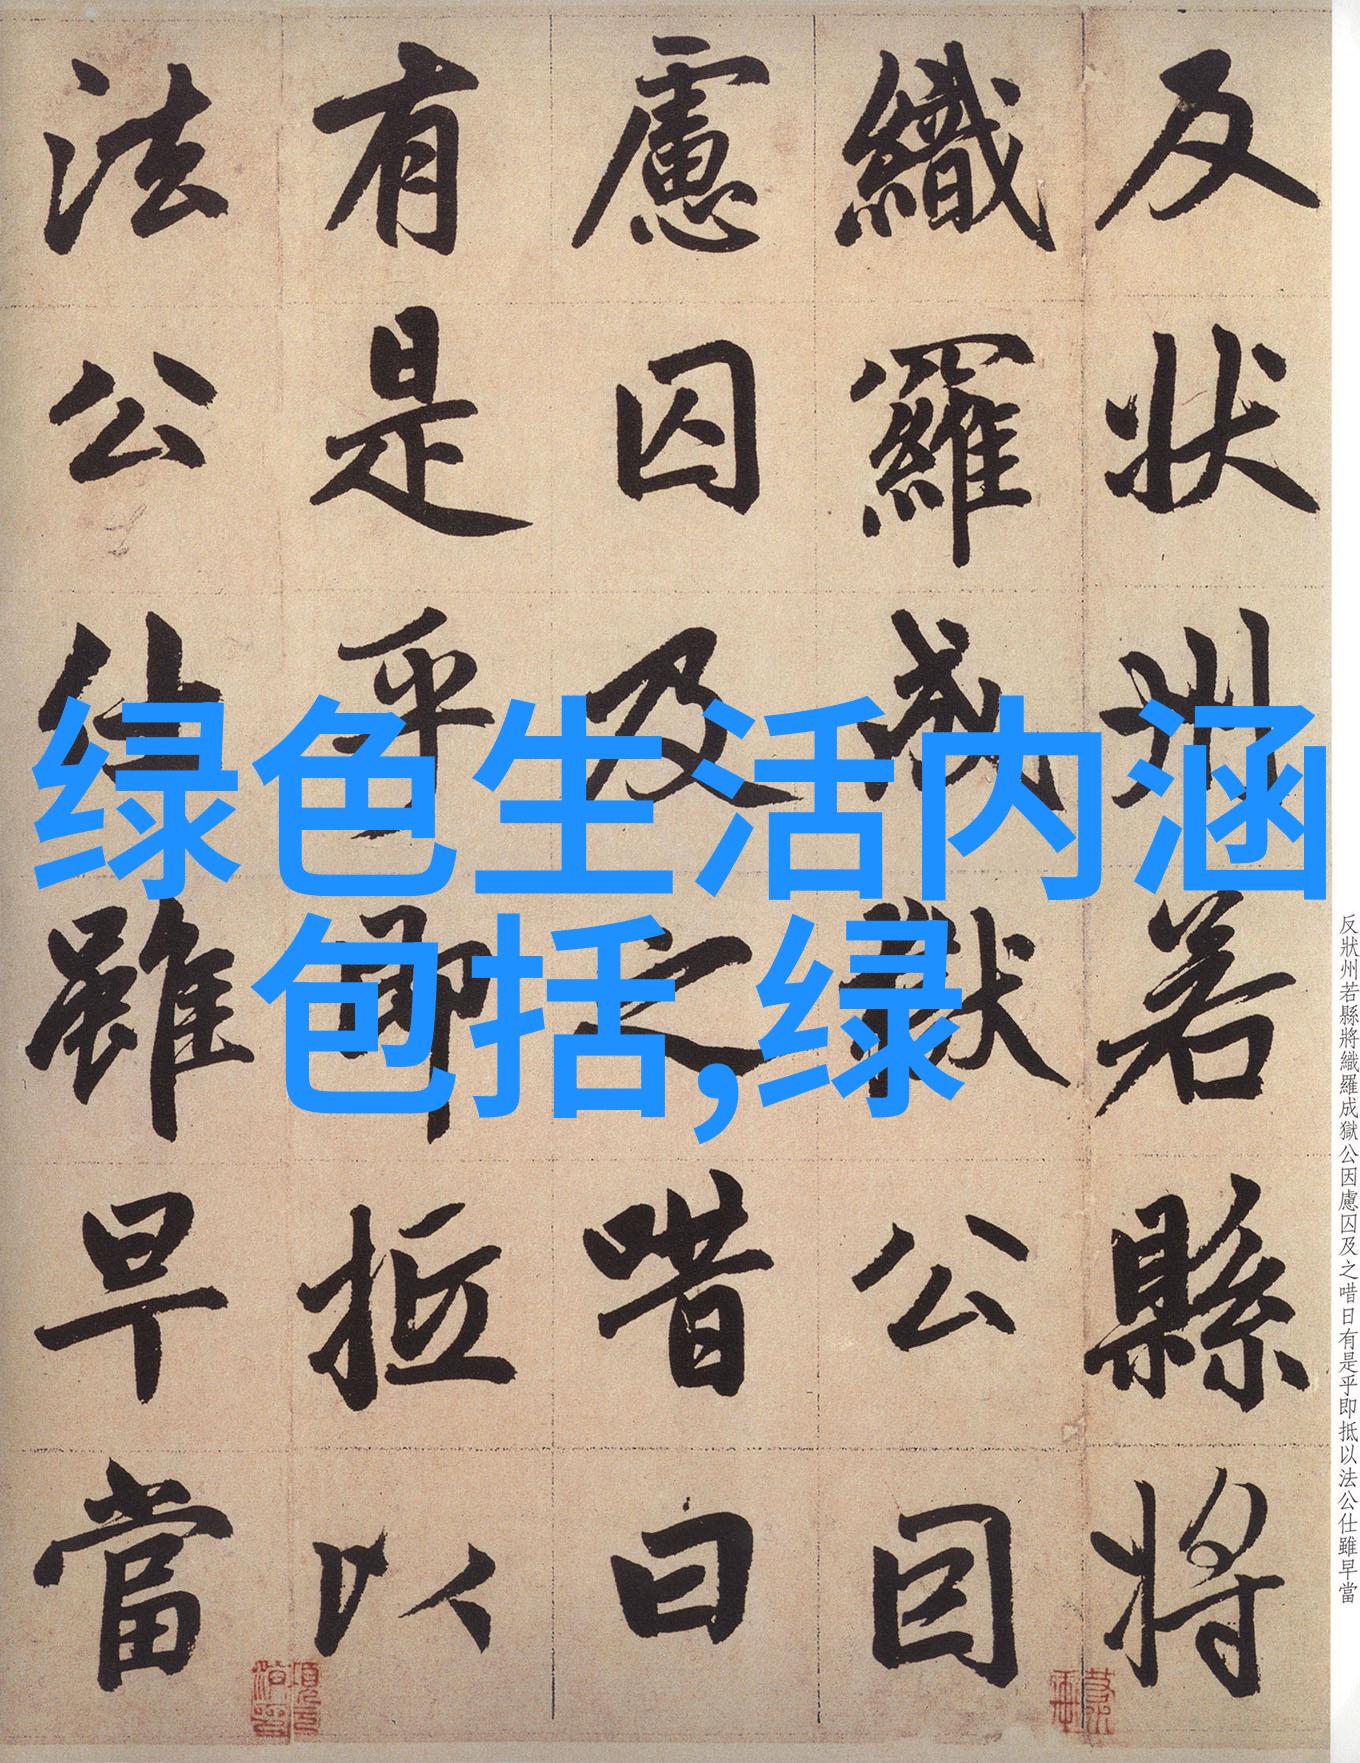 反状州若縣將
織羅成獄公因
慮囚及之唶曰
有是乎即抵以
法公仕雖早當
绿色生活内涵
包括,绿
反狀州若縣將織羅成獄公因慮囚及之唶日有是乎即抵以法公仕雖早當